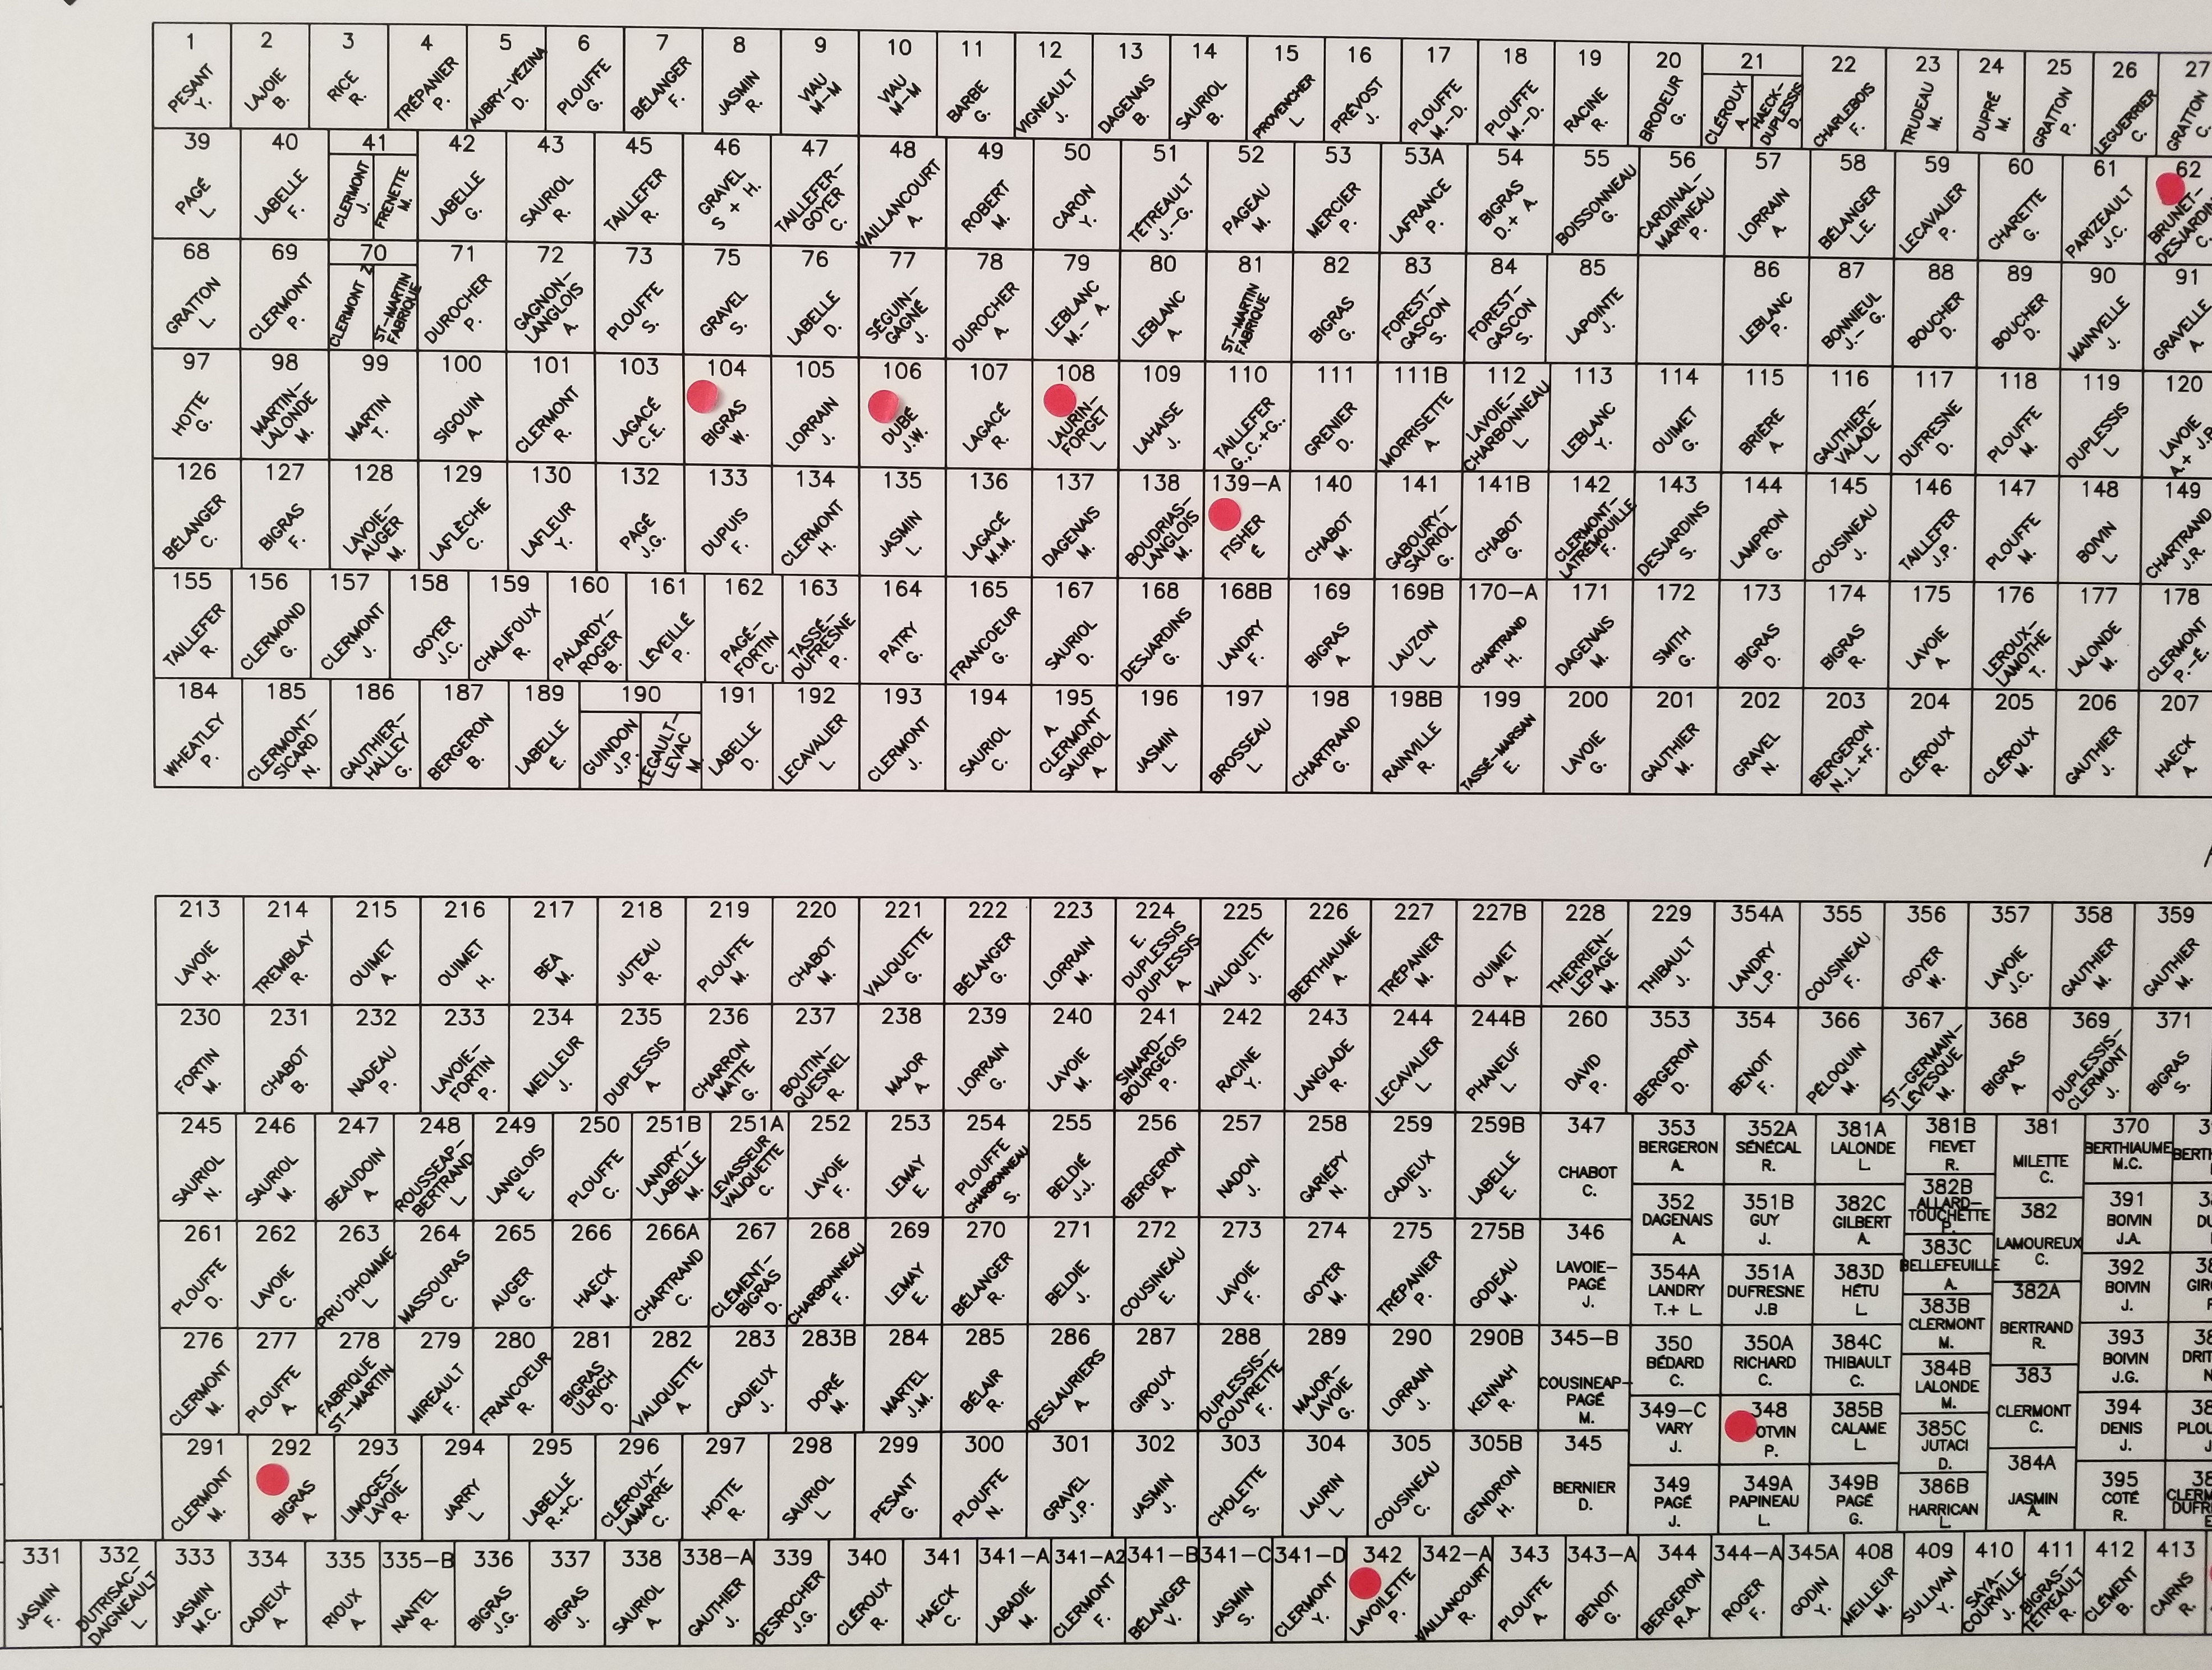 1 PESANT Y.
2 LAJOIE B.
3 RICE R.
4 TRÉPANIER P.
5 AUBRY-VÉZINA D.
6 PLOUFFE G.
7 BÉLANGER F.
8 JASMIN R.
9 VIAU M-M
10 VIAU M-M
11 BARBE G.
12 VIGNEAULT J.
13 DAGENAIS B.
14 SAURIOL B.
15 PROVENCHER L.
16 PRÉVOST J.
17 PLOUFFE M.-D.
18 PLOUFFE M.-D.
19 RACINE R.
20 BRODEUR G.
21 CLÉROUX A. HAECK-DUPLESSIS D.
22 CHARLEBOIS F.
23 TRUDEAU M.
24 DUPRÉ M.
25 GRATTON P.
26 LEGUERRIER C.
27 GRATTON C.
39 PAGÉ L.
40 LABELLE F.
41 CLERMONT J. FRENETTE M.
42 LABELLE G.
43 SAURIOL R.
45 TAILLEFER R.
46 GRAVEL S + H.
47 TAILLEFER-GOYER C.
48 VAILLANCOURT A.
49 ROBERT M.
50 CARON Y.
51 TÉTREAULT J.-G.
52 PAGEAU M.
53 MERCIER P.
53A LAFRANCE P.
54 BIGRAS D.+ A.
55 BOISSONNEAU G.
56 CARDINAL-MARINEAU P.
57 LORRAIN A.
58 BÉLANGER L.E.
59 LECAVALIER P.
60 CHARETTE G.
61 PARIZEAULT J.C.
62 BRUNET-DESJARDINS C.
68 GRATTON L.
69 CLERMONT P.
70 CLERMONT Z ST-MARTIN FABRIQUE
71 DUROCHER P.
72 GAGNON-LANGLOIS A.
73 PLOUFFE S.
75 GRAVEL S.
76 LABELLE D.
77 SÉGUIN-GAGNÉ J.
78 DUROCHER A.
79 LEBLANC M.- A.
80 LEBLANC A.
81 ST-MARTIN FABRIQUE
82 BIGRAS G.
83 FOREST-GASCON S.
84 FOREST-GASCON S.
85 LAPOINTE J.
86 LEBLANC P.
87 BONNIEUL J.- G.
88 BOUCHER D.
89 BOUCHER D.
90 MAINVELLE J.
91 GRAVELLE A.
97 HOTTE G.
98 MARTIN-LALONDE M.
99 MARTIN T.
100 SIGOUIN A.
101 CLERMONT R.
103 LAGACÉ C.E.
104 BIGRAS W.
105 LORRAIN J.
106 DUBÉ J.W.
107 LAGACÉ R.
108 LAURIN-FORGET L.
109 LAHAISE J.
110 TAILLEFER G.,C.+G.
111 GRENIER D.
111B MORRISETTE A.
112 LAVOIE-CHARBONNEAU L.
113 LEBLANC Y.
114 OUIMET G.
115 BRIÈRE A.
116 GAUTHIER-VALADE L.
117 DUFRESNE D.
118 PLOUFFE M.
119 DUPLESSIS L.
120 LAVOIE A.+ J.P.
126 BÉLANGER C.
127 BIGRAS F.
128 LAVOIE-AUGER M.
129 LAFLÈCHE C.
130 LAFLEUR Y.
132 PAGÉ J.G.
133 DUPUIS F.
134 CLERMONT H.
135 JASMIN L.
136 LAGACÉ M.M.
137 DAGENAIS M.
138 BOUDRIAS-LANGLOIS M.
139-A FISHER É
140 CHABOT M.
141 GABOURY-SAURIOL G.
141B CHABOT G.
142 CLERMONT-LATRÉMOUILLE F.
143 DESJARDINS S.
144 LAMPRON G.
145 COUSINEAU J.
146 TAILLEFER J.P.
147 PLOUFFE M.
148 BOIVIN L.
149 CHARTRAND J.R.
155 TAILLEFER R.
156 CLERMOND G.
157 CLERMONT J.
158 GOYER J.C.
159 CHALIFOUX R.
160 PALARDY-ROGER B.
161 LÉVEILLÉ P.
162 PAGÉ-FORTIN C.
163 TASSÉ-DUFRESNE P.
164 PATRY G.
165 FRANCOEUR G.
167 SAURIOL D.
168 DESJARDINS G.
168B LANDRY F.
169 BIGRAS A.
169B LAUZON L.
170-A CHARTRAND H.
171 DAGENAIS M.
172 SMITH G.
173 BIGRAS D.
174 BIGRAS R.
175 LAVOIE A.
176 LEROUX-LAMOTHE T.
177 LALONDE M.
178 CLERMONT P.-É.
184 WHEATLEY P.
185 CLERMONT-SICARD N.
186 GAUTHIER-HALLEY G.
187 BERGERON B.
189 LABELLE É.
190 GUINDON J.P. LEGAULT-LEVAC M.
191 LABELLE D.
192 LECAVALIER L.
193 CLERMONT J.
194 SAURIOL C.
195 A. CLERMONT SAURIOL A.
196 JASMIN L.
197 BROSSEAU L.
198 CHARTRAND G.
198B RAINVILLE R.
199 TASSÉ-MARSAN E.
200 LAVOIE G.
201 GAUTHIER M.
202 GRAVEL N.
203 BERGERON N.,L.+F.
204 CLÉROUX R.
205 CLÉROUX M.
206 GAUTHIER J.
207 HAECK A.
213 LAVOIE H.
214 TREMBLAY R.
215 OUIMET A.
216 OUIMET H.
217 BEA M.
218 JUTEAU R.
219 PLOUFFE M.
220 CHABOT M.
221 VALIQUETTE G.
222 BÉLANGER G.
223 LORRAIN M.
224 E. DUPLESSIS DUPLESSIS A.
225 VALIQUETTE J.
226 BERTHIAUME A.
227 TRÉPANIER M.
227B OUIMET A.
228 THERRIEN-LEPAGE M.
229 THIBAULT J.
354A LANDRY L.P.
355 COUSINEAU F.
356 GOYER W.
357 LAVOIE J.C.
358 GAUTHIER M.
359 GAUTHIER M.
230 FORTIN M.
231 CHABOT B.
232 NADEAU P.
233 LAVOIE-FORTIN P.
234 MEILLEUR J.
235 DUPLESSIS A.
236 CHARRON MATTE G.
237 BOUTIN-QUESNEL R.
238 MAJOR A.
239 LORRAIN G.
240 LAVOIE M.
241 SIMARD-BOURGEOIS P.
242 RACINE Y.
243 LANGLADE R.
244 LECAVALIER L.
244B PHANEUF L.
260 DAVID P.
353 BERGERON D.
354 BENOIT F.
366 PÉLOQUIN M.
367 ST-GERMAIN-LÉVESQUE M.
368 BIGRAS A.
369 DUPLESSIS-CLERMONT J.
371 BIGRAS S.
245 SAURIOL N.
246 SAURIOL M.
247 BEAUDOIN A.
248 ROUSSEAP-BERTRAND L.
249 LANGLOIS E.
250 PLOUFFE C.
251B LANDRY-LABELLE M.
251A LEVASSEUR VALIQUETTE C.
252 LAVOIE F.
253 LEMAY E.
254 PLOUFFE CHARBONNEAU S.
255 BELDIÉ J.J.
256 BERGERON A.
257 NADON J.
258 GARIÉPY N.
259 CADIEUX J.
259B LABELLE E.
347 CHABOT C.
353 BERGERON A.
352A SÉNÉCAL R.
381A LALONDE L.
381B FIEVET R.
381 MILETTE C.
370 BERTHIAUME M.C.
352 DAGENAIS A.
351B GUY J.
382C GILBERT A.
382B ALLARD-TOUCHETTE P.
382 LAMOUREUX C.
391 BOIVIN J.A.
261 PLOUFFE D.
262 LAVOIE C.
263 PRU'DHOMME L.
264 MASSOURAS C.
265 AUGER G.
266 HAECK M.
266A CHARTRAND C.
267 CLÉMENT-BIGRAS D.
268 CHARBONNEAU F.
269 LEMAY E.
270 BÉLANGER R.
271 BELDIE J.
272 COUSINEAU E.
273 LAVOIE F.
274 GOYER M.
275 TRÉPANIER P.
275B GODEAU M.
346 LAVOIE-PAGÉ J.
354A LANDRY T.+ L.
351A DUFRESNE J.B
383D HÉTU L.
383C BELLEFEUILLE A.
382A BERTRAND R.
392 BOIVIN J.
383B CLERMONT M.
276 CLERMONT M.
277 PLOUFFE A.
278 FABRIQUE ST-MARTIN
279 MIREAULT F.
280 FRANCOEUR R.
281 BIGRAS ULRICH D.
282 VALIQUETTE A.
283 CADIEUX J.
283B DORÉ M.
284 MARTEL J.M.
285 BÉLAIR R.
286 DESLAURIERS A.
287 GIROUX J.
288 DUPLESSIS-COUVRETTE F.
289 MAJOR-LAVOIE G.
290 LORRAIN J.
290B KENNAH R.
345-B COUSINEAP-PAGÉ M.
350 BÉDARD C.
350A RICHARD C.
384C THIBAULT C.
384B LALONDE M.
383 CLERMONT C.
393 BOIVIN J.G.
349-C VARY J.
348 OTVIN P.
385B CALAME L.
385C JUTACI D.
394 DENIS J.
291 CLERMONT M.
292 BIGRAS A.
293 LIMOGES-LAVOIE R.
294 JARRY L.
295 LABELLE R.+C.
296 CLÉROUX-LAMARRE C.
297 HOTTE R.
298 SAURIOL L.
299 PESANT G.
300 PLOUFFE N.
301 GRAVEL J.P.
302 JASMIN J.
303 CHOLETTE S.
304 LAURIN L.
305 COUSINEAU C.
305B GENDRON H.
345 BERNIER D.
349 PAGÉ J.
349A PAPINEAU L.
349B PAGÉ G.
386B HARRICAN L.
384A JASMIN A.
395 COTÉ R.
331 JASMIN F.
332 DUTRISAC-DAIGNEAULT L.
333 JASMIN M.C.
334 CADIEUX A.
335 RIOUX A.
335-B NANTEL R.
336 BIGRAS J.G.
337 BIGRAS J.
338 SAURIOL A.
338-A GAUTHIER J.
339 DESROCHER J.G.
340 CLÉROUX R.
341 HAECK C.
341-A LABADIE M.
341-A2 CLERMONT F.
341-B BÉLANGER V.
341-C JASMIN S.
341-D CLERMONT Y.
342 LAVOILETTE P.
342-A VAILLANCOURT R.
343 PLOUFFE A.
343-A BENOIT G.
344 BERGERON R.A.
344-A ROGER F.
345A GODIN Y.
408 MEILLEUR M.
409 SULLIVAN Y.
410 SAYA-COURVILLE J.
411 BIGRAS-TÉTREAULT R.
412 CLÉMENT B.
413 CAIRNS R.